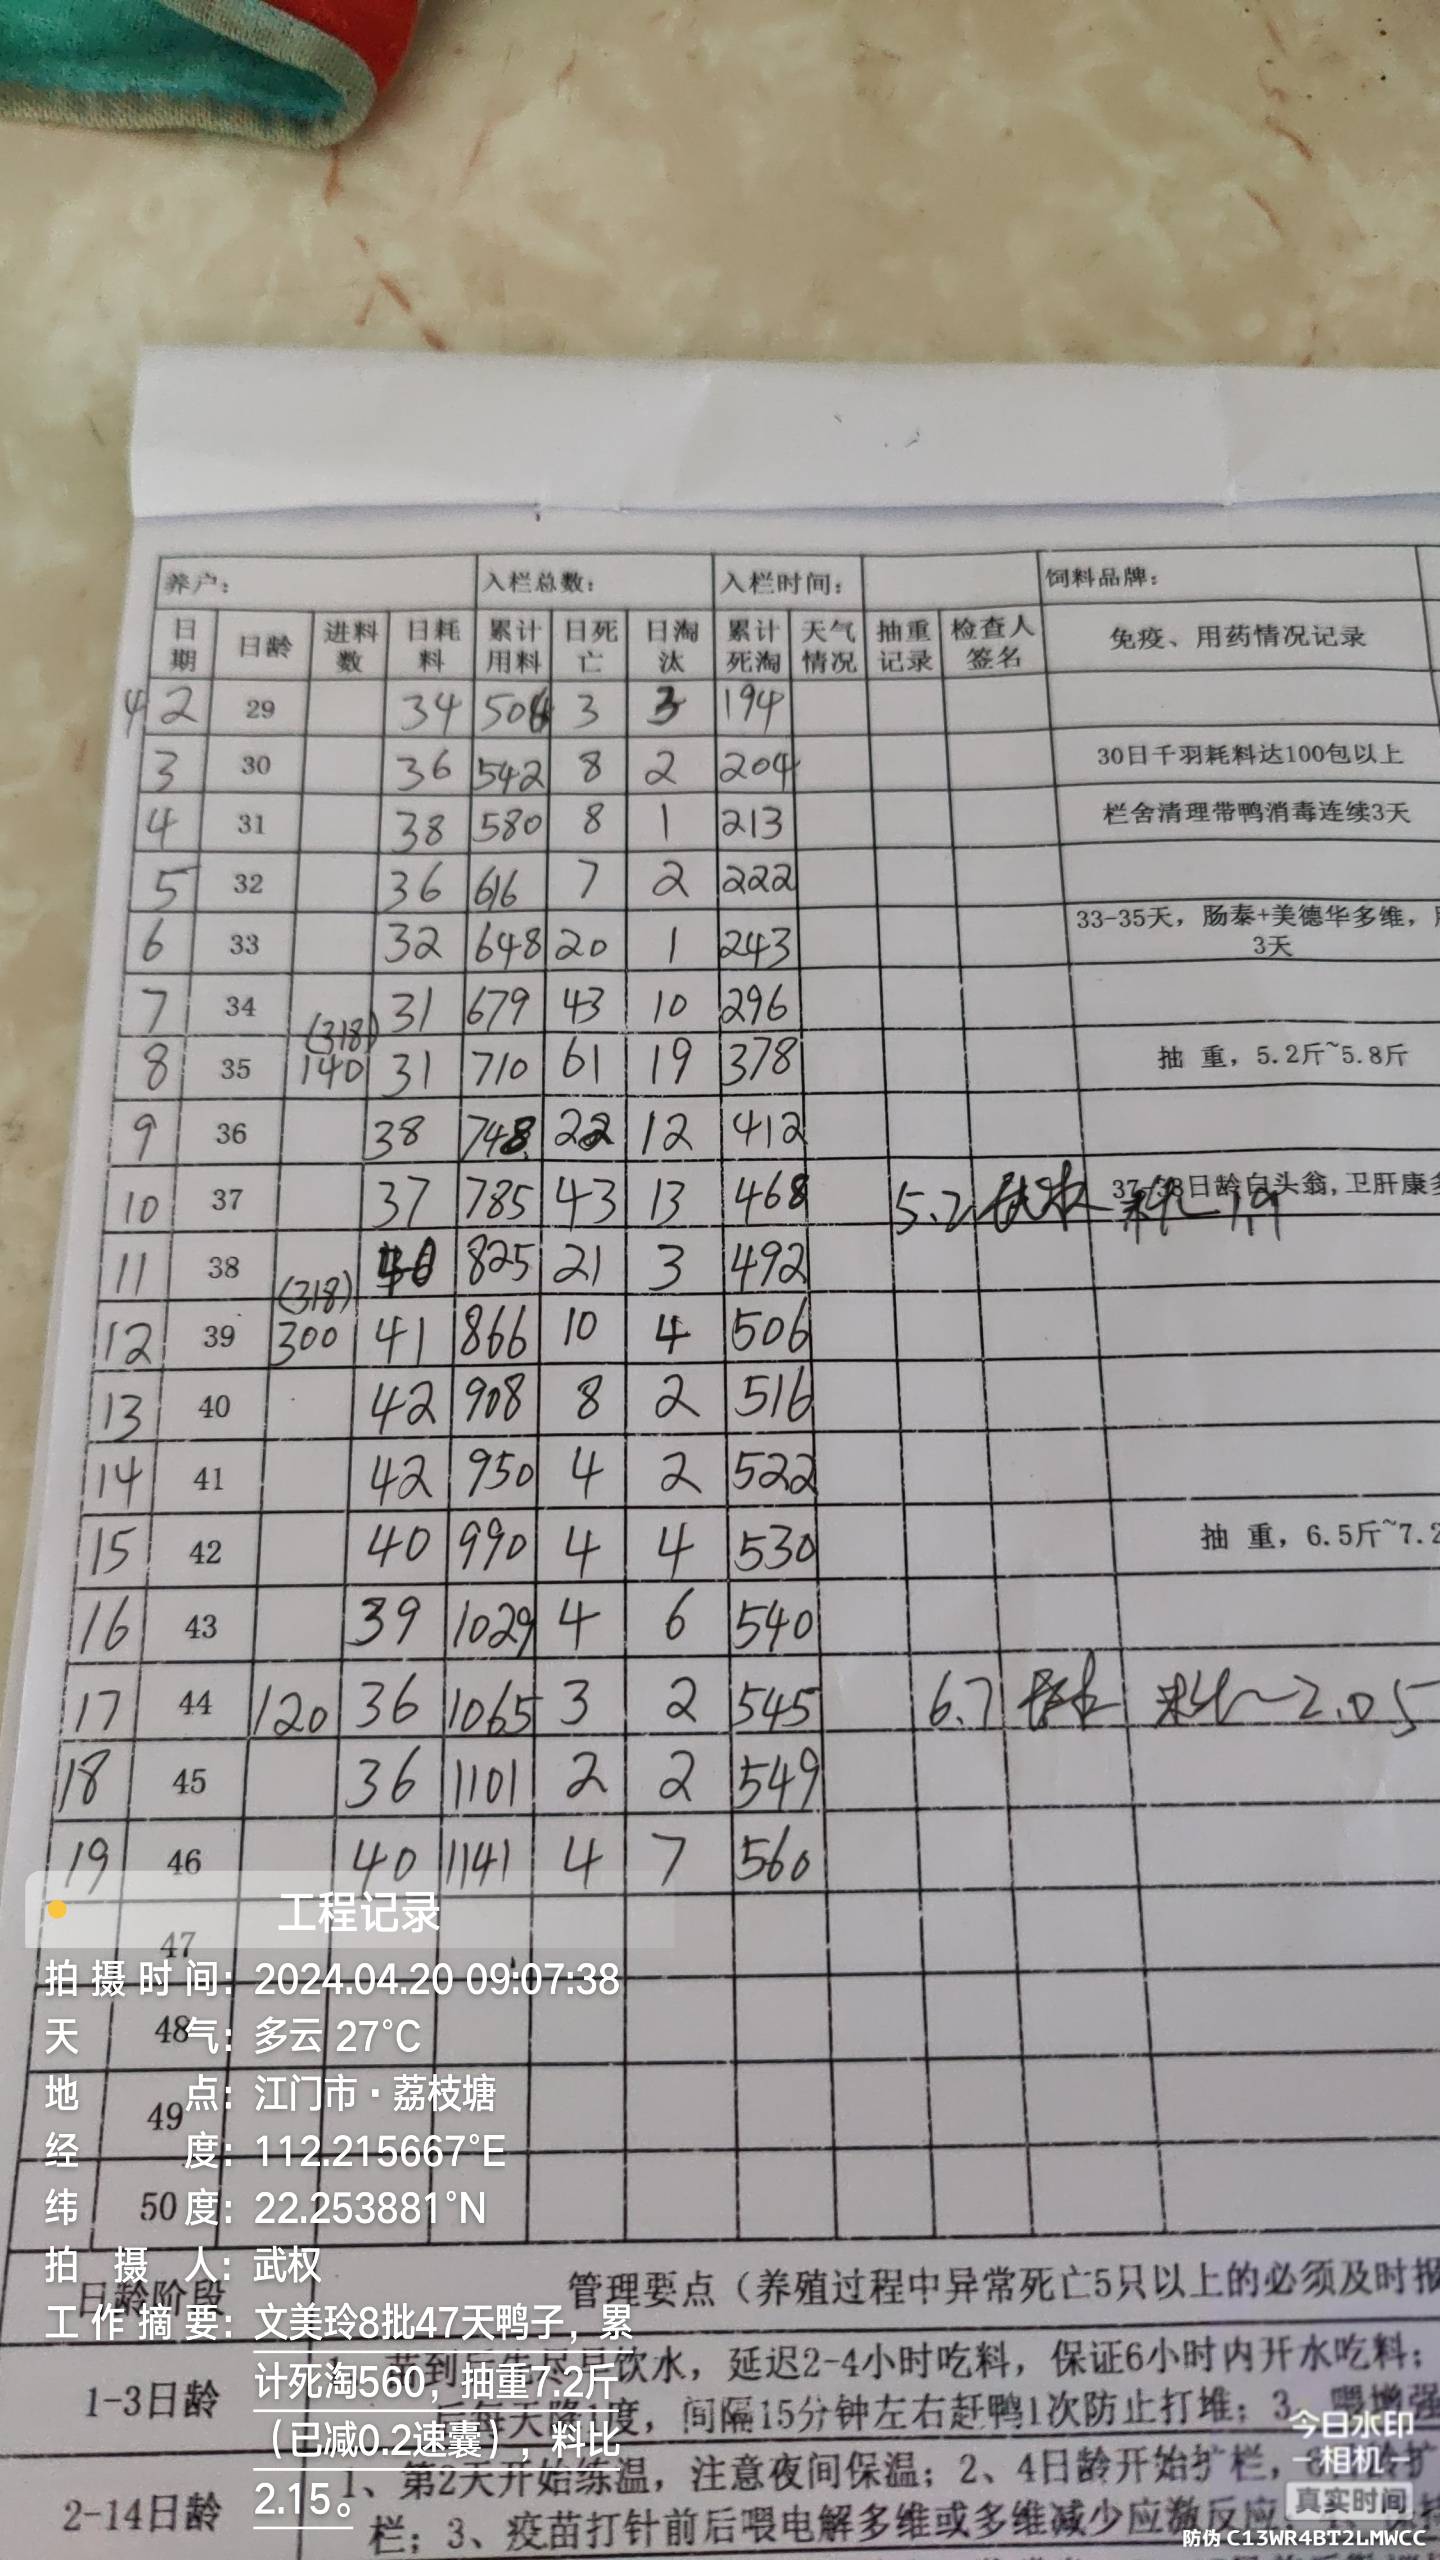 养户： 入栏总数： 入栏时间： 饲料品牌：
日期 日龄 进料数 日耗料 累计用料 日死亡 日淘汰 累计死淘 天气情况 抽重记录 检查人签名 免疫、用药情况记录
4 2 29 34 506 3 3 194
3 30 36 542 8 2 204 30日千羽耗料达100包以上
4 31 38 580 8 1 213 栏舍清理带鸭消毒连续3天
5 32 36 616 7 2 222
6 33 32 648 20 1 243 33-35天，肠泰+美德华多维，
3天
7 34 31 679 43 10 296
8 35 (318) 140 31 710 61 19 378 抽 重，5.2斤~5.8斤
9 36 38 748 22 12 412
10 37 37 785 43 13 468 5.2 37-38日龄白头翁,卫肝康多
11 38 40 825 21 3 492
12 39 (318) 300 41 866 10 4 506
13 40 42 908 8 2 516
14 41 42 950 4 2 522
15 42 40 990 4 4 530 抽 重，6.5斤~7.2
16 43 39 1029 4 6 540
17 44 120 36 1065 3 2 545 6.7 料比2.05
18 45 36 1101 2 2 549
19 46 40 1141 4 7 560
47
48
49
50
工程记录
拍摄时间：2024.04.20 09:07:38
天气：多云 27°C
地点：江门市·荔枝塘
经度：112.215667°E
纬度：22.253881°N
拍摄人：武权
工作摘要：文美玲8批47天鸭子，累
计死淘560，抽重7.2斤
（已减0.2速囊），料比
2.15。
日龄阶段 管理要点（养殖过程中异常死亡5只以上的必须及时报
1-3日龄 饮水，延迟2-4小时吃料，保证6小时内开水吃料；
度，间隔15分钟左右赶鸭1次防止打堆；3、喂增强
2-14日龄 1、第2天开始练温，注意夜间保温；2、4日龄开始扩栏，
栏；3、疫苗打针前后喂电解多维或多维减少应激反应
今日水印
相机
真实时间
防伪 C13WR4BT2LMWCC